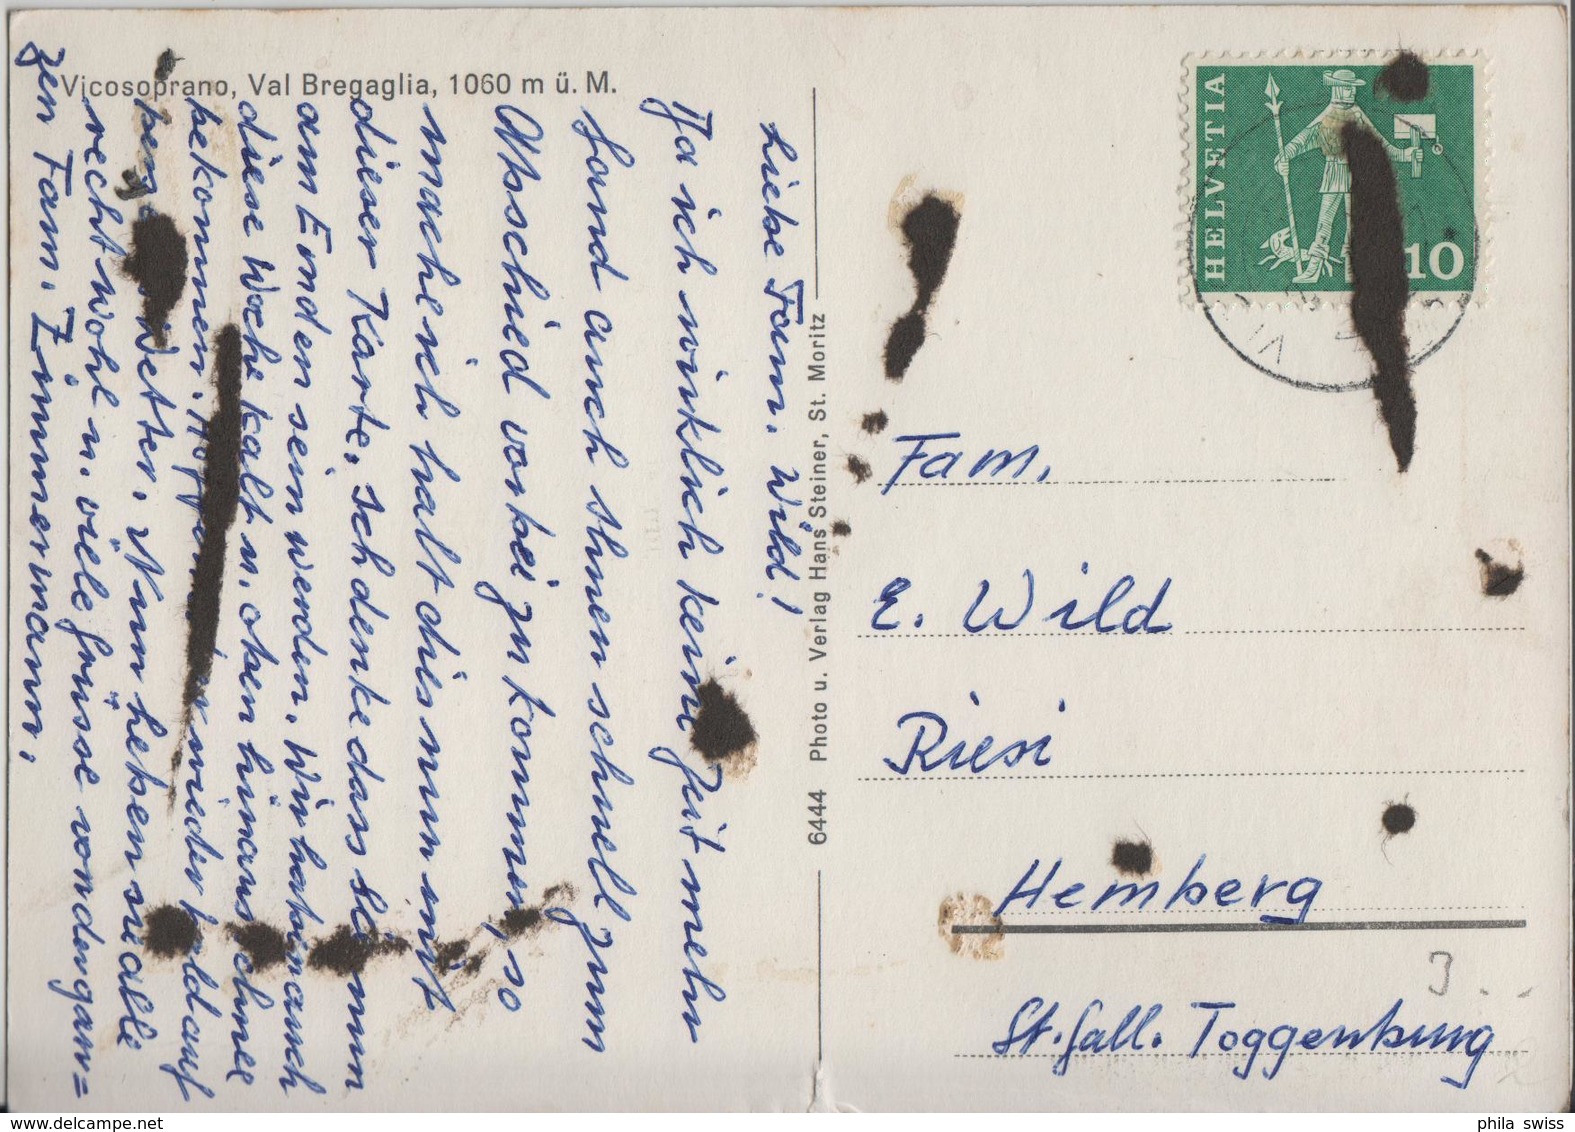 Vicosoprano, Val Bregaglia, 1060 m ü. M.
Liebe Fam. Wild!
Da ich wirklich keine Zeit mehr
fand auch Ihnen schnell zum
Abschied vorbei zu kommen, so
mache ich halt dies nun mit
dieser Karte. Ich denke dass Sie nun
am Emden sein werden. Wir haben auch
diese Woche kalt u. oben hinaus Schnee
bekommen. Hoffen wir wieder bald auf
Wetter. Nun leben Sie alle
recht wohl u. viele Grüsse von der gan=
zen Fam. Zimmermann.
6444 Photo u. Verlag Hans Steiner, St. Moritz
HELVETIA
10
VI
Fam.
E. Wild
Riesi
Hemberg
St. Gall. Toggenburg
phila swiss